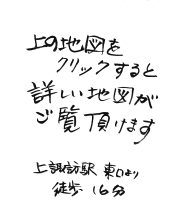 上の地図を
クリックすると
詳しい地図が
ご覧頂けます
上諏訪駅 東口より
徒歩 16分